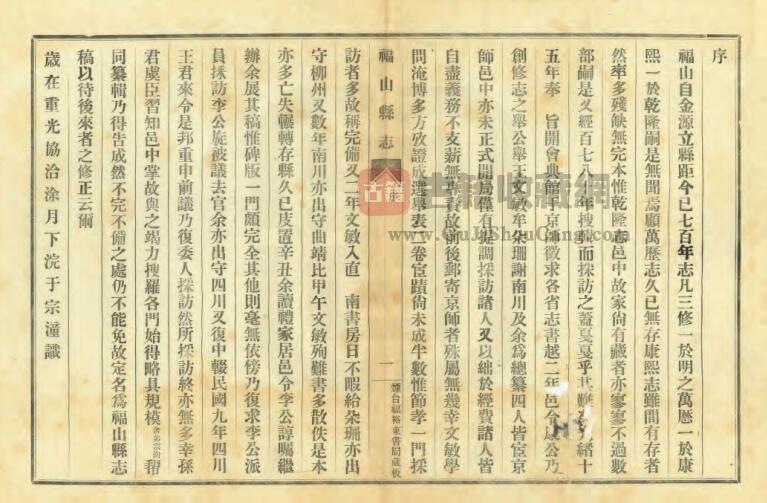 序
福山自金源立縣距今已七百年志凡三修一於明之萬厯一於康
熙一於乾隆嗣是無聞焉顧萬厯志久已無存康熙志雖間有存者
然率多殘缺無完本惟乾隆志邑中故家尚有藏者亦寥寥不過數
部嗣是又經百七八十年搜輯而採訪之蓋戛戛乎其難光緒十
五年奉 旨開會典館于京師徵求各省志書越二年邑令康公乃
創修志之舉公舉王文敏牟朵珊謝南川及余為總纂四人皆宦京
師邑中亦未正式開局僅有提調採訪諸人又以絀於經費諸人皆
自盡義務不支薪無專責故前後郵寄京師者殊屬無幾幸文敏學
問淹博多方攷證成選舉表二卷宦蹟尚未成半數惟節孝一門採
福山縣志
一
煙台福裕東書局藏板
訪者多故稱完備又二年文敏入直 南書房日不暇給朵珊亦出
守柳州又數年南川亦出守曲靖比甲午文敏殉難書多散佚是本
亦多亡失輾轉存縣久已庋置辛丑余讀禮家居邑令李公諄囑繼
辦余展其稿惟碑版一門頗完全其他則毫無依傍乃復求李公派
員採訪李公旋被議去官余亦出守四川又復中輟民國九年四川
王君來令是邦重申前議乃復委人採訪然所採訪終亦無多幸孫
君虞臣習知邑中掌故與之竭力搜羅各門始得略具規模
同纂輯乃得告成然不完不備之處仍不能免故定名為福山縣志
稿以待後來者之修正云爾
歲在重光協洽涂月下浣于宗潼識
古籍
书籍收藏网
www.GuJiShouCang.com